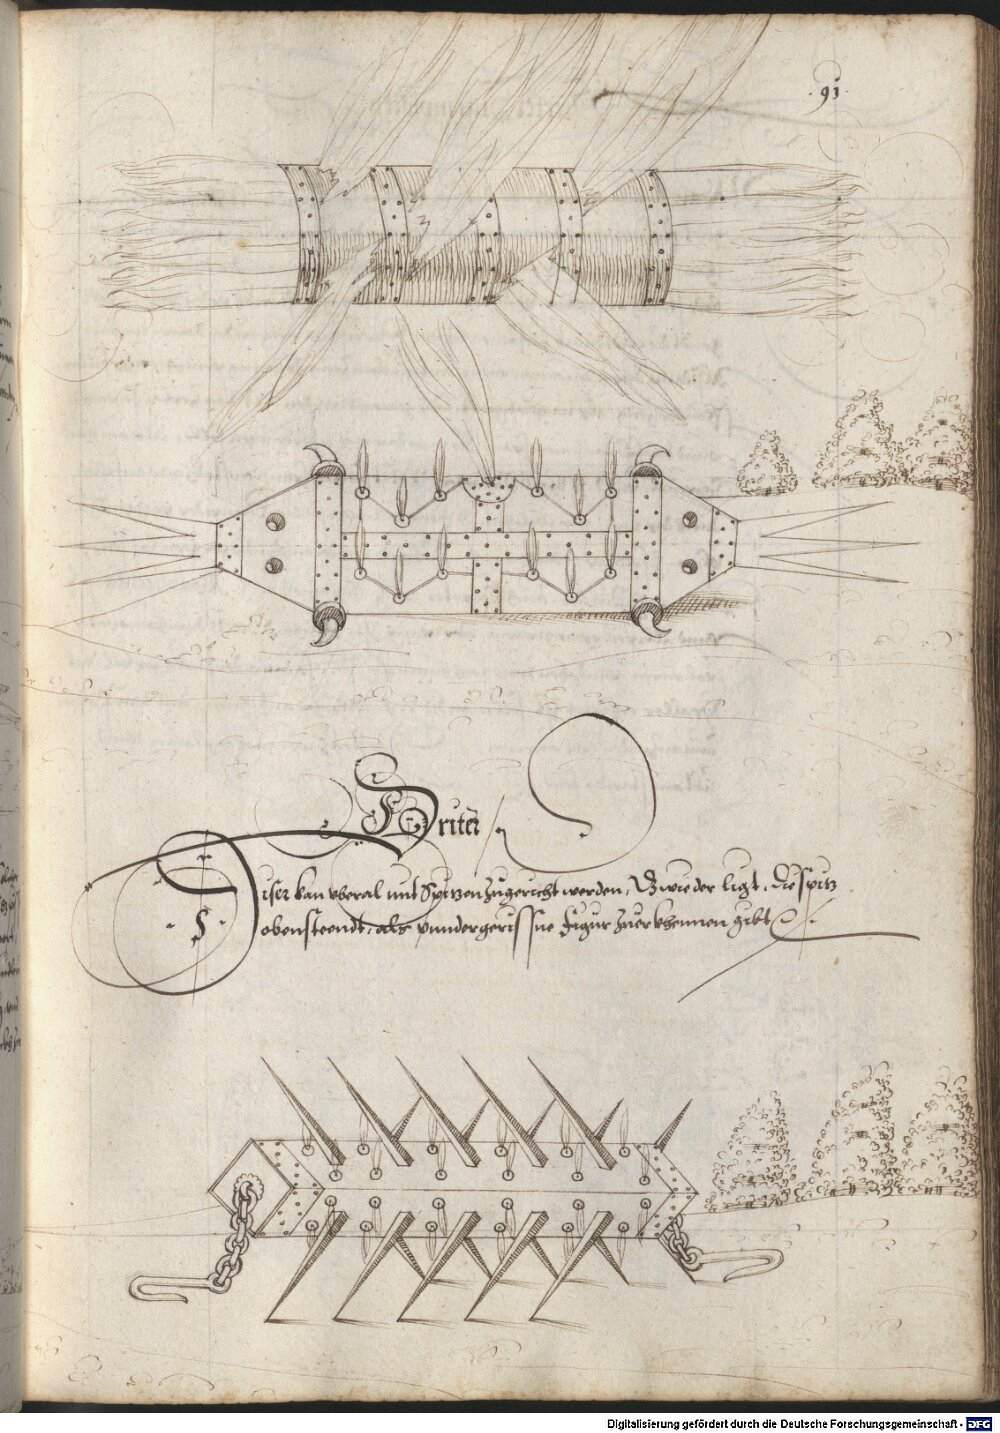 ·91·
Driter
Diser kan vberal mit Spitzen zugericht werden, Wie der ligt, die spitz
obensteendt, als vnndergerissne figur zuerkhennen gibt
Digitalisierung gefördert durch die Deutsche Forschungsgemeinschaft - DFG